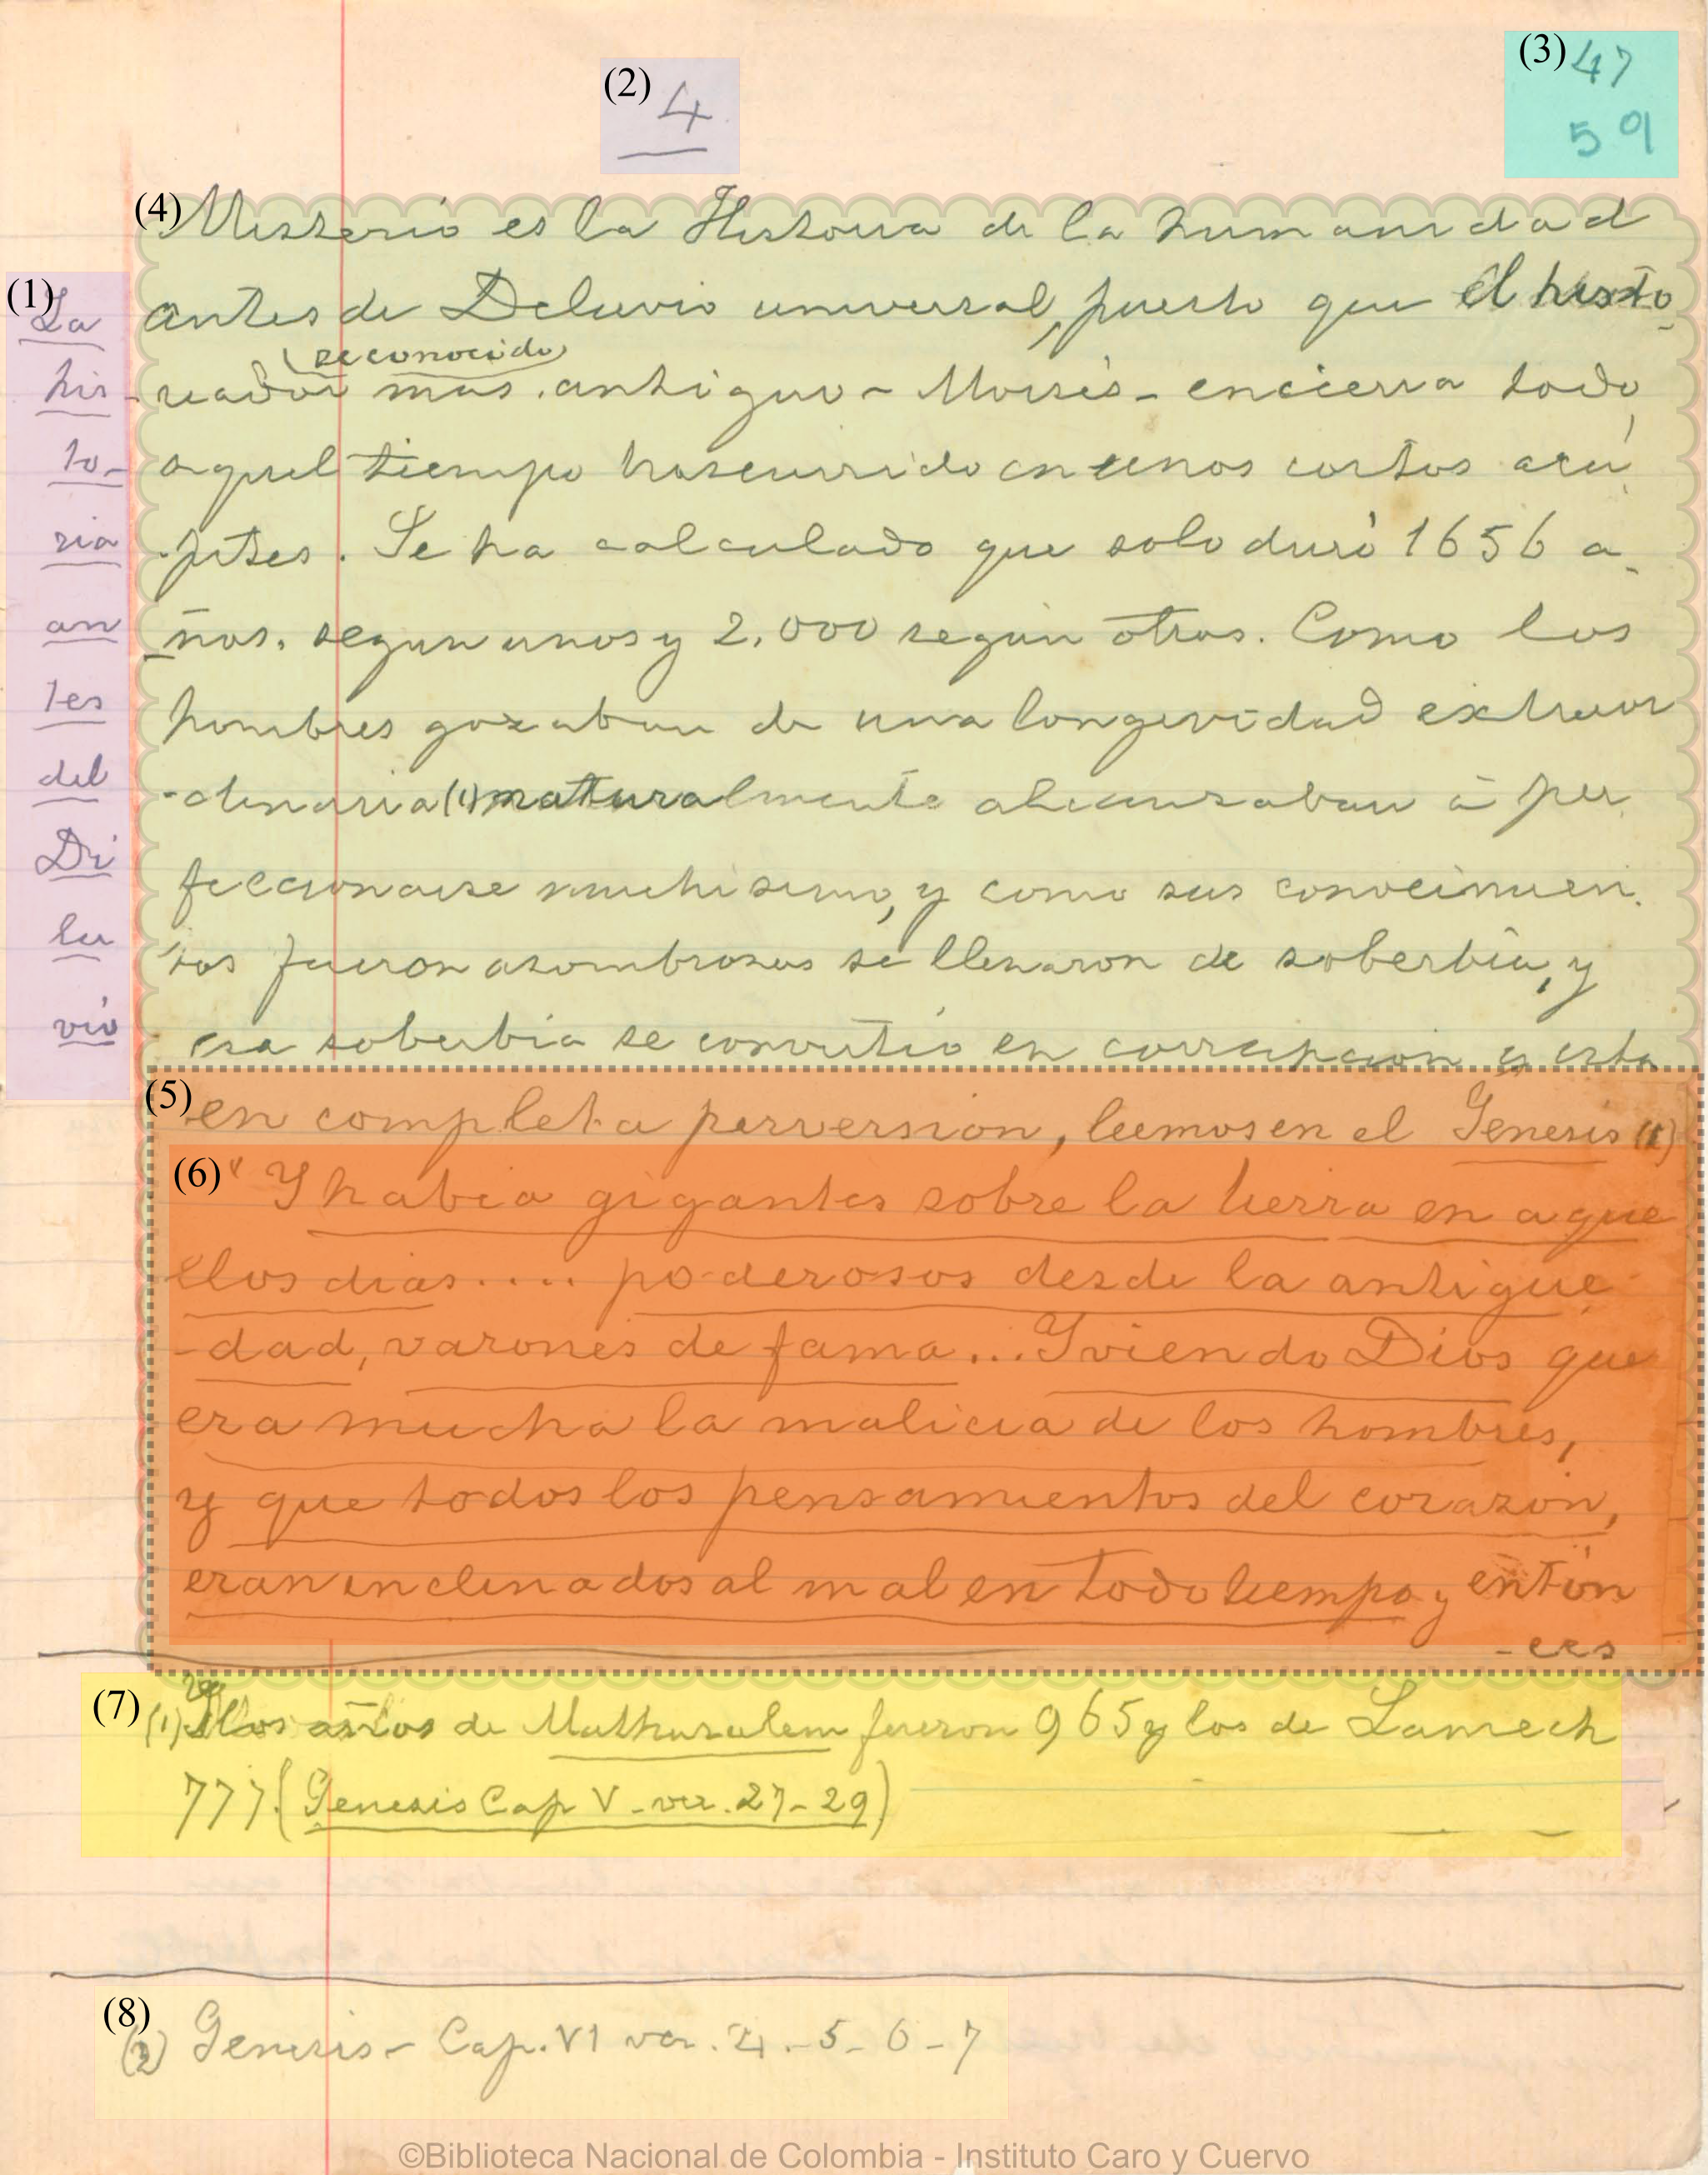 (2) 4
(3) 47
59
(1) La
his
to-
ria
an
tes
del
Di
lu
vio
(4) Misterio es la Historia de la humanidad
antes de Deluvio universal, puesto que el histo
(reconocido)
reador mas antiguo - Moisés - encierra todo
aquel tiempo trascurrido en unos cortos acá
pites. Se ha calculado que solo duró 1656 a-
ños. segun unos y 2.000 según otros. Como los
hombres gozaban de una longevidad extraor
-dinaria (1) naturalmente alcanzaban á per
feccionarse muchisimo, y como sus conocimien
tos fueron asombrosos se llenaron de soberbia, y
esa soberbia se convirtió en corrupcion y esta
(5) en completa perversion, leemos en el Genesis
(6) " Y habia gigantes sobre la tierra en aque
llos dias.... poderosos desde la antigue
-dad, varones de fama... Y viendo Dios que
era mucha la malicia de los hombres,
y que todos los pensamientos del corazón,
eran inclinados al mal en todo tiempo y entón
-ces
(7) (1) los años de Mathusalem fueron 965 y los de Lamech
777. (Genesis Cap V - ver. 27-29)
(8) (2) Genesis - Cap. VI ver. 4.-5-6-7
©Biblioteca Nacional de Colombia - Instituto Caro y Cuervo